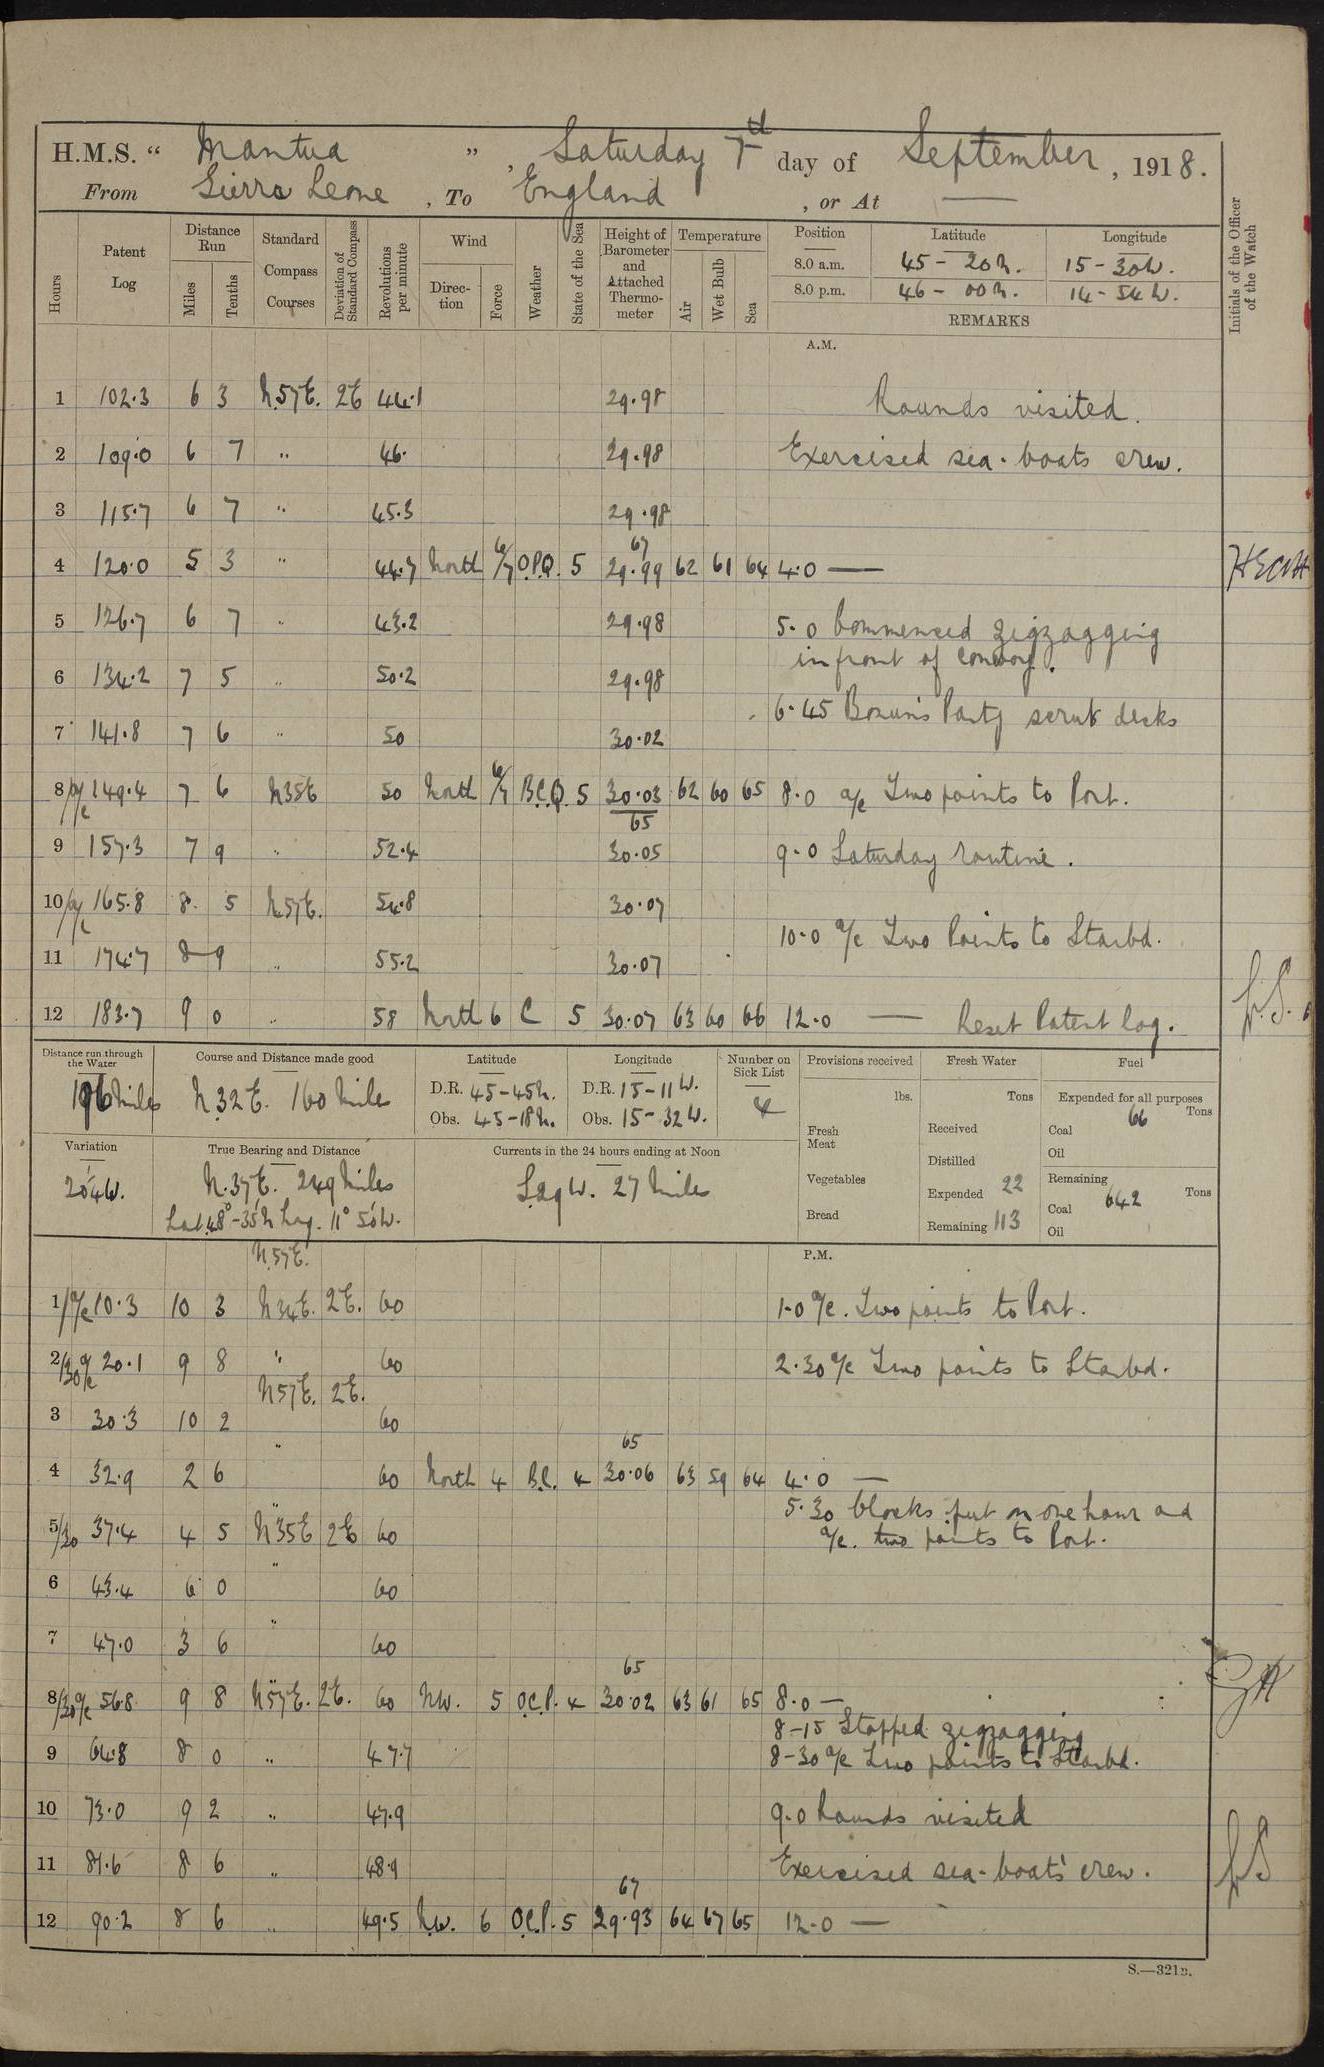 H.M.S. “ Mantua ” , Saturday 7th day of September , 1918.
From Sierra Leone , To England , or At ——
Hours
Patent Log
Distance Run
Miles
Tenths
Standard Compass Courses
Deviation of Standard Compass
Revolutions per minute
Wind
Direction
Force
Weather
State of the Sea
Height of Barometer and Attached Thermometer
Temperature
Air
Wet Bulb
Sea
Position Latitude Longitude
8.0 a.m. 45 – 20 N. 15 – 30 W.
8.0 p.m. 46 – 00 N. 14 – 54 W.
REMARKS
Initials of the Officer of the Watch
A.M.
1 102.3 6 3 N.57E. 2E 44.1 29.98 Rounds visited.
2 109.0 6 7 " 46. 29.98 Exercised sea-boats crew.
3 115.7 6 7 " 45.3 29.98
67
4 120.0 5 3 " 44.7 North 6/7 O.P.Q. 5 29.99 62 61 64 4.0 ——
5 126.7 6 7 " 43.2 29.98 5.0 Commenced zigzagging
in front of convoy.
6 134.2 7 5 " 50.2 29.98
6.45 Bosun's Party scrub decks
7 141.8 7 6 " 50 30.02
8 a/c 149.4 7 6 N35E 50 North 6/7 B.C.Q. 5 30.03 62 60 65 8.0 a/c Two points to Port.
65
9 157.3 7 9 " 52.4 30.05 9.0 Saturday routine.
10 a/c 165.8 8 5 N57E. 54.8 30.07
10.0 a/c Two Points to Starbd.
11 174.7 8 9 " 55.2 30.07
12 183.7 9 0 " 58 North 6 C 5 30.07 63 60 66 12.0 —— Reset Patent log.
Distance run through the Water
Miles
Course and Distance made good
N.32E. 160 Miles
Latitude
D.R. 45–45N.
Obs. 45–18N.
Longitude
D.R. 15–11W.
Obs. 15–32W.
Number on Sick List
4
Variation
20°4W.
True Bearing and Distance
N.37E. 249 Miles
Lat. 48°–35'N Long. 11° 50'W.
Currents in the 24 hours ending at Noon
W. 27 Miles
Provisions received
lbs.
Fresh Meat
Vegetables
Bread
Fresh Water
Tons
Received
Distilled
Expended 22
Remaining 113
Fuel
Expended for all purposes
Coal 66 Tons
Oil
Remaining
Coal 642 Tons
Oil
P.M.
N.57E.
1 a/c 10.3 10 3 N34E. 2E. 60 1.0 a/c. Two points to Port.
2/30 a/c 20.1 9 8 " 60 2.30 a/c Two points to Starbd.
N57E. 2E.
3 30.3 10 2 60
"
65
4 32.9 2 6 60 North 4 B.C. 4 30.06 63 59 64 4.0 —
5.30 Clocks put on one hour and
5/30 37.4 4 5 N35E 2E 60 a/c. two points to Port.
"
6 43.4 6 0 60
"
7 47.0 3 6 60
65
8/30 a/c 56.8 9 8 N57E. 2E. 60 NW. 5 O.C.P. 4 30.02 63 61 65 8.0 —
8–15 Stopped zigzagging
9 64.8 8 0 " 47.7 8–30 a/c Two points to Starbd.
10 73.0 9 2 " 47.9 9.0 Rounds visited
11 81.6 8 6 " 48.9 Exercised sea-boats' crew.
67
12 90.2 8 6 " 49.5 NW. 6 O.C.P. 5 29.93 64 67 65 12.0 —
S.—321B.